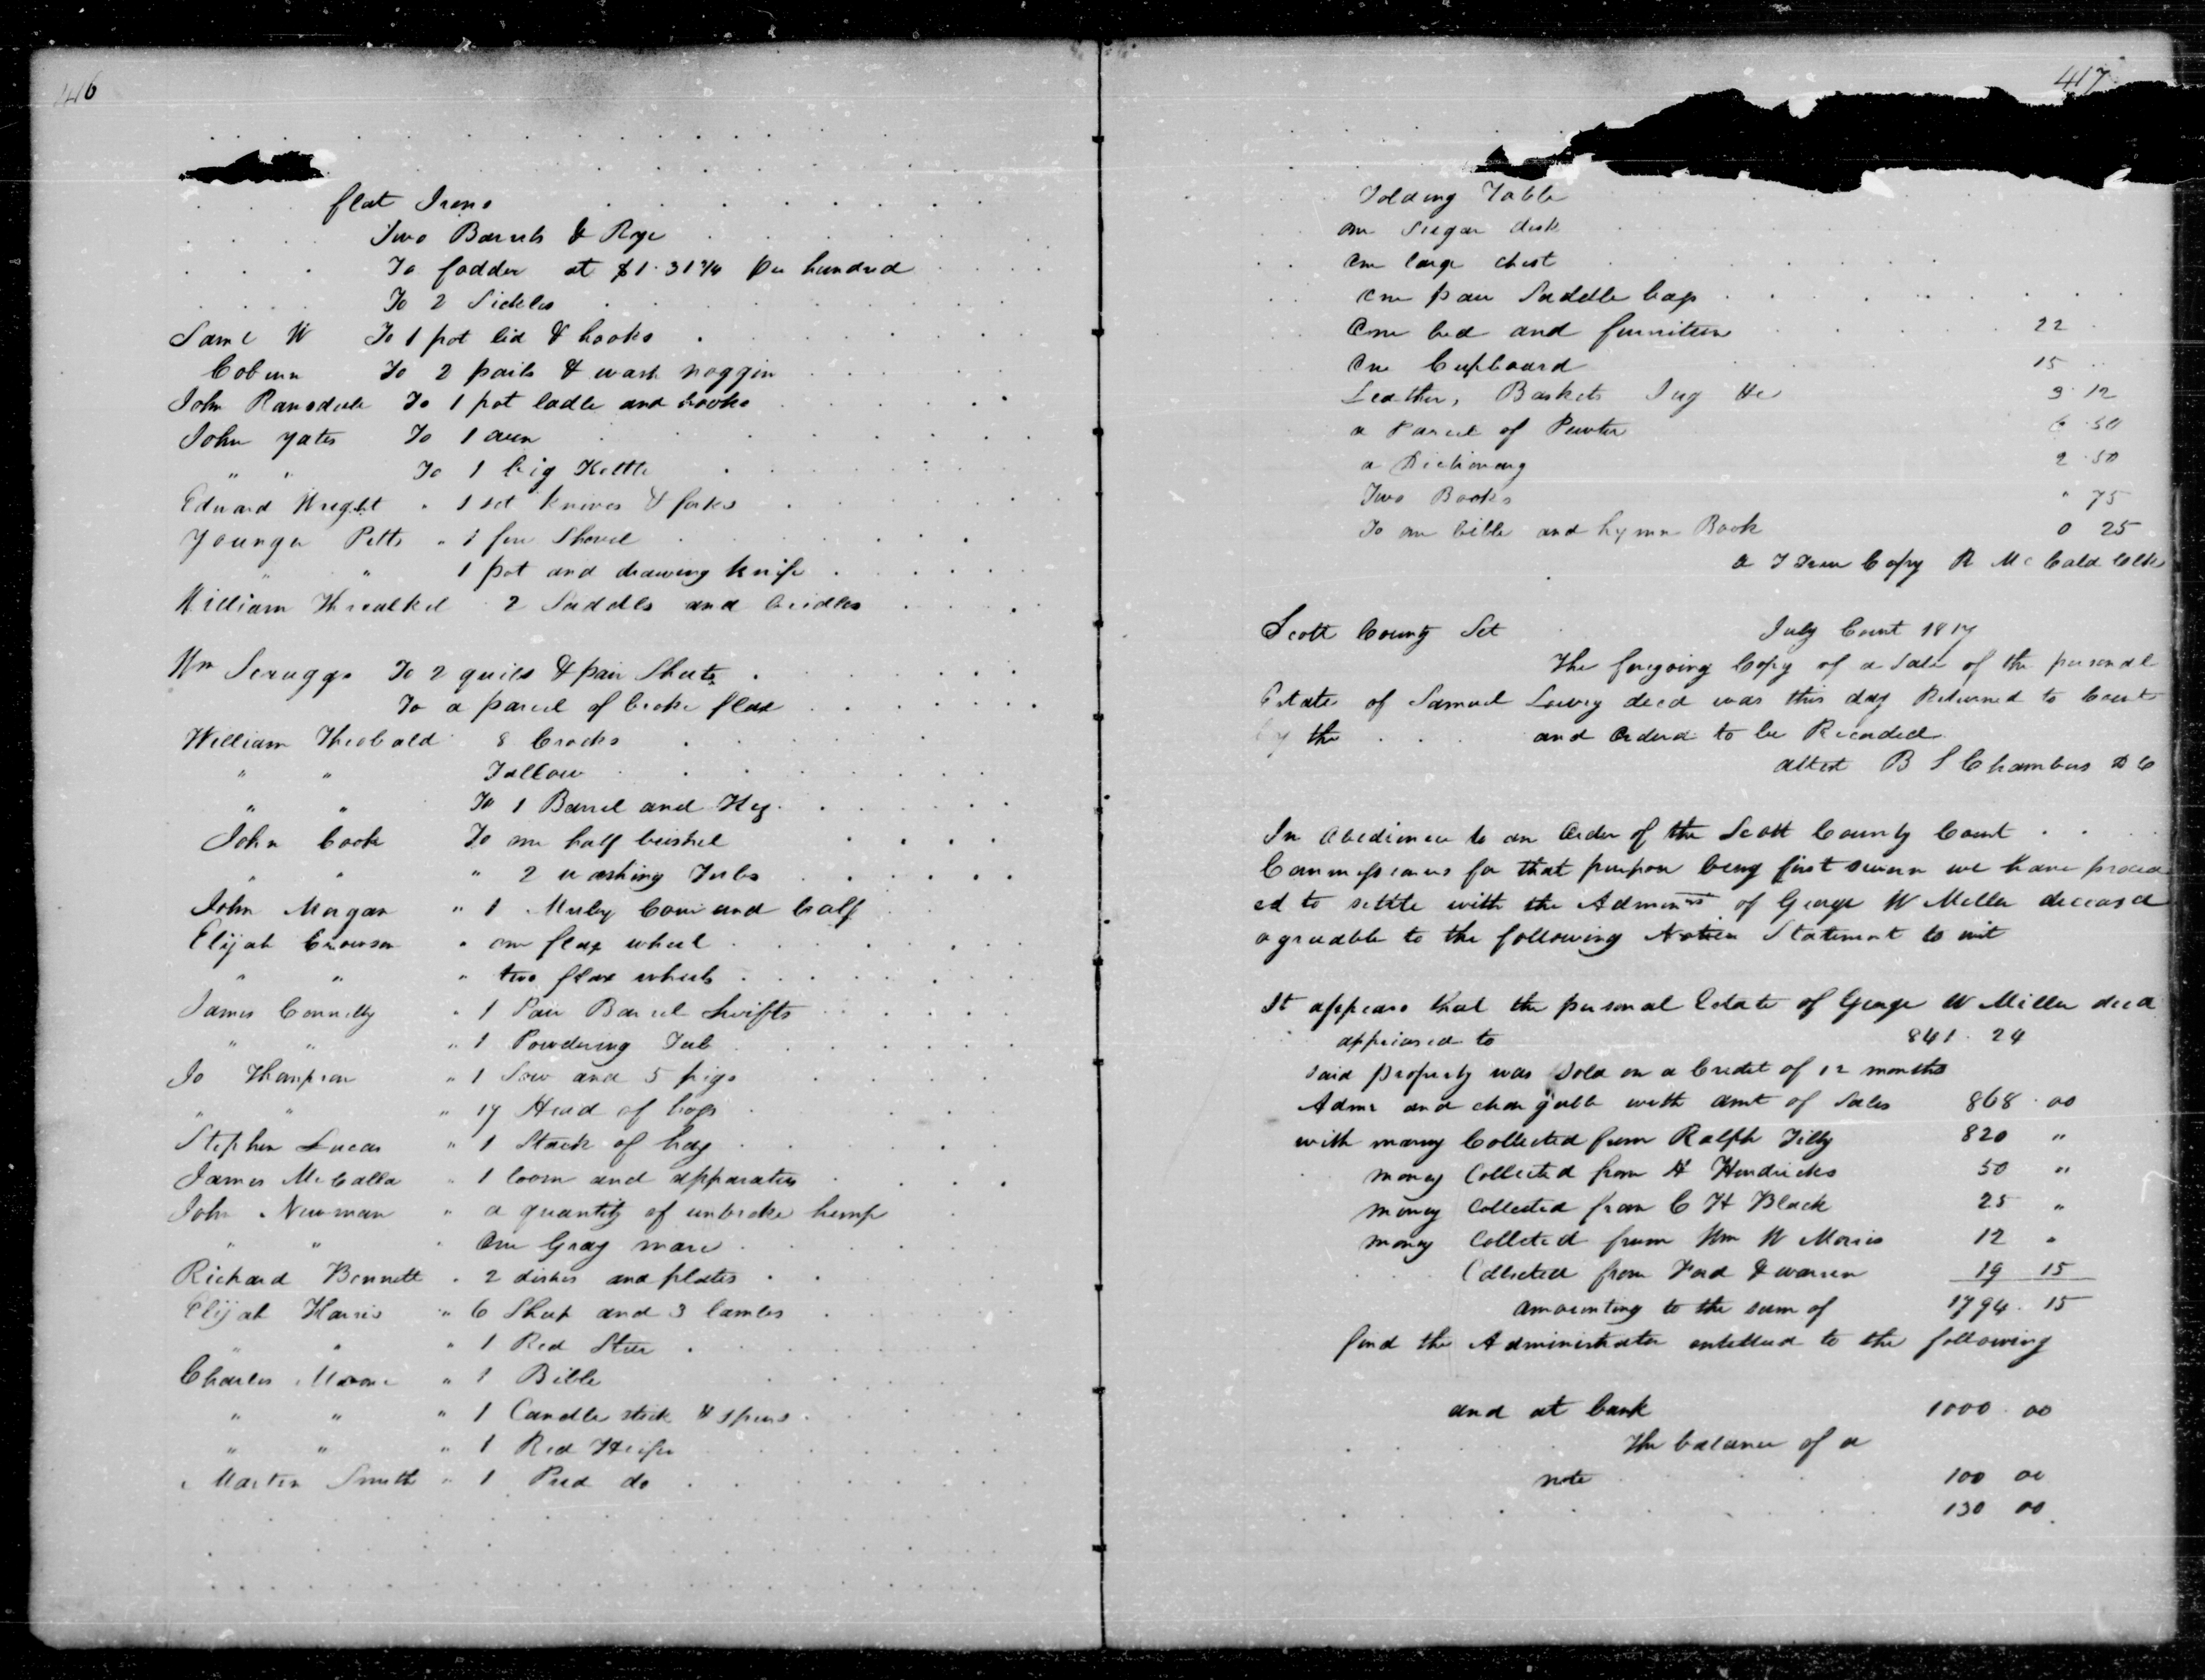 416
flat Irons
Two Barrels & Rye
To fodder at $1.31 1/4 per hundred
To 2 Sickles
Saml W To 1 pot lid & hooks
Coburn To 2 pails & wash noggin
John Ransdale To 1 pot ladle and hooks
John Yates To 1 oven
" " To 1 big Kettle
Edward Wright " 1 set knives & forks
Younger Pitts " 1 fire Shovel
" " 1 pot and drawing knife
William Threalkel 2 Saddles and bridles
Wm Scruggs To 2 quils & pair Sheets
To a parcel of broke flax
William Theobald 8 Crocks
" " Tallow
" " To 1 Barrel and Keg
John Cook To one half bushel
" " " 2 washing Tubs
John Morgan " 1 Muley Cow and Calf
Elijah " one flax wheel
" " " two flax wheels
James Connelly " 1 Pair Barrel Swifts
" " " 1 Powdering Tub
Jo Thompson " 1 Sow and 5 pigs
" " " 17 Head of hogs
Stephen Lucas " 1 Stack of hay
James McCalla " 1 loom and apparatus
John Newman " a quantity of unbroke hemp
" " " One Gray mare
Richard Bennett " 2 dishes and plates
Elijah Harris " 6 Sheep and 3 lambs
" " " 1 Red Steer
Charles Moore " 1 Bible
" " " 1 Candle stick &
" " " 1 Red Heifer
Martin Smith " 1 Pied do
417
Folding Table
one Sugar desk
One large chest
One pair Saddle bags
One bed and furniture 22
One Cupboard 15
Leather, Baskets Jug &c 3.12
a Parcel of Pewter 6.50
a Dictionary 2.50
Two Books " 75
To one bible and hymn Book 0 25
a True Copy R McCald Clk
Scott County Sct July Court 1817
The foregoing Copy of a Sale of the personal
Estate of Samuel Lowry decd was this day Returned to Court
by the and Ordered to be Recorded
attest B S Chambers D C
In Obedience to an Order of the Scott County Court
Commissioners for that purpose being first sworn we have proceed
ed to settle with the Adminrs of George W Miller deceased
agreeable to the following Notice Statement to wit
It appears that the personal Estate of George W Miller decd
appriased to 841.24
Said property was Sold on a Credit of 12 months
Admr and chargable with amt of Sales 868.00
with money Collected from Ralph Tilly 820 "
money Collected from H Hendricks 50 "
money Collected from C H Black 25 "
money Colleted from Wm W Morris 12 "
Collected from Ford & warren 19 15
amounting to the sum of 1794.15
find the Administrator entitled to the following
and at bank 1000.00
The balance of a
note 100 00
130 00